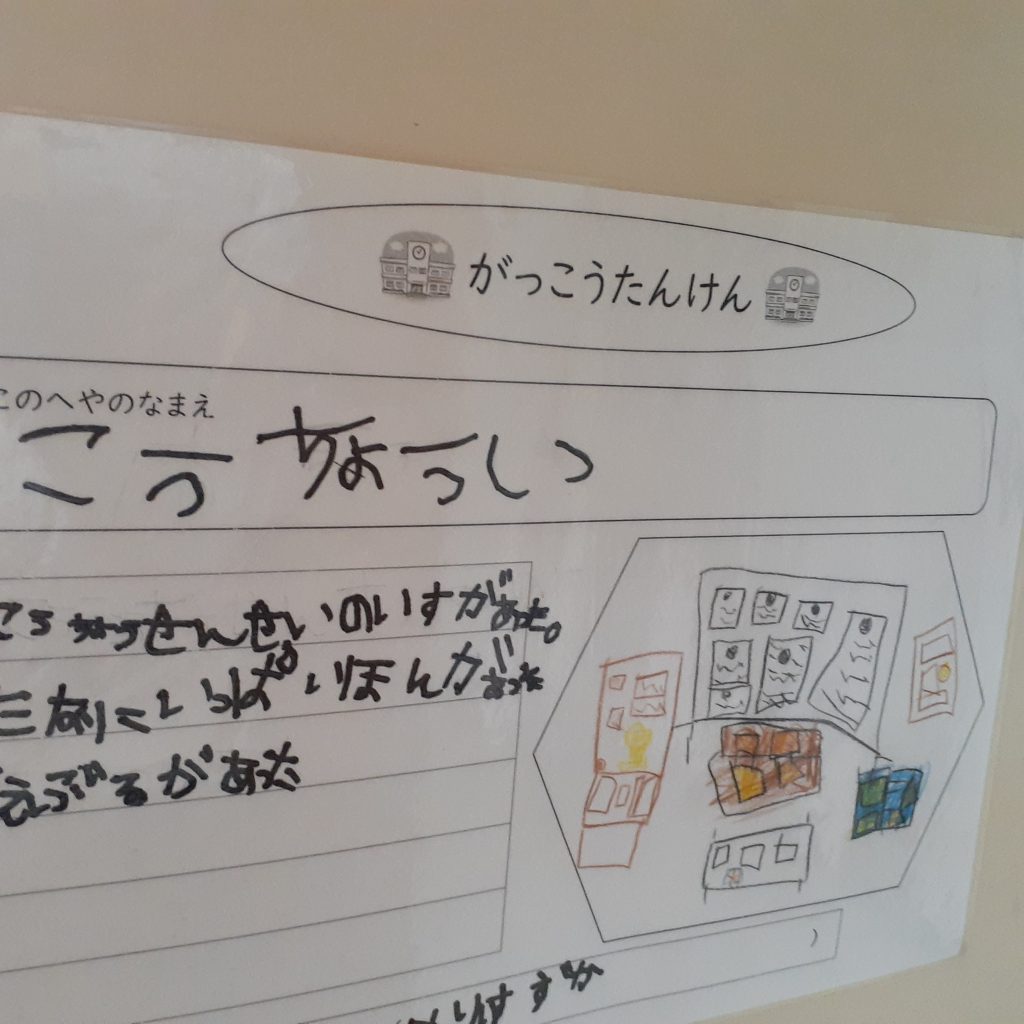 がっこうたんけん
このへやのなまえ
こうちょうしつ
こうちょうせんせいのいすがあった。
いっぱいほんがあった
てえぶるがあった